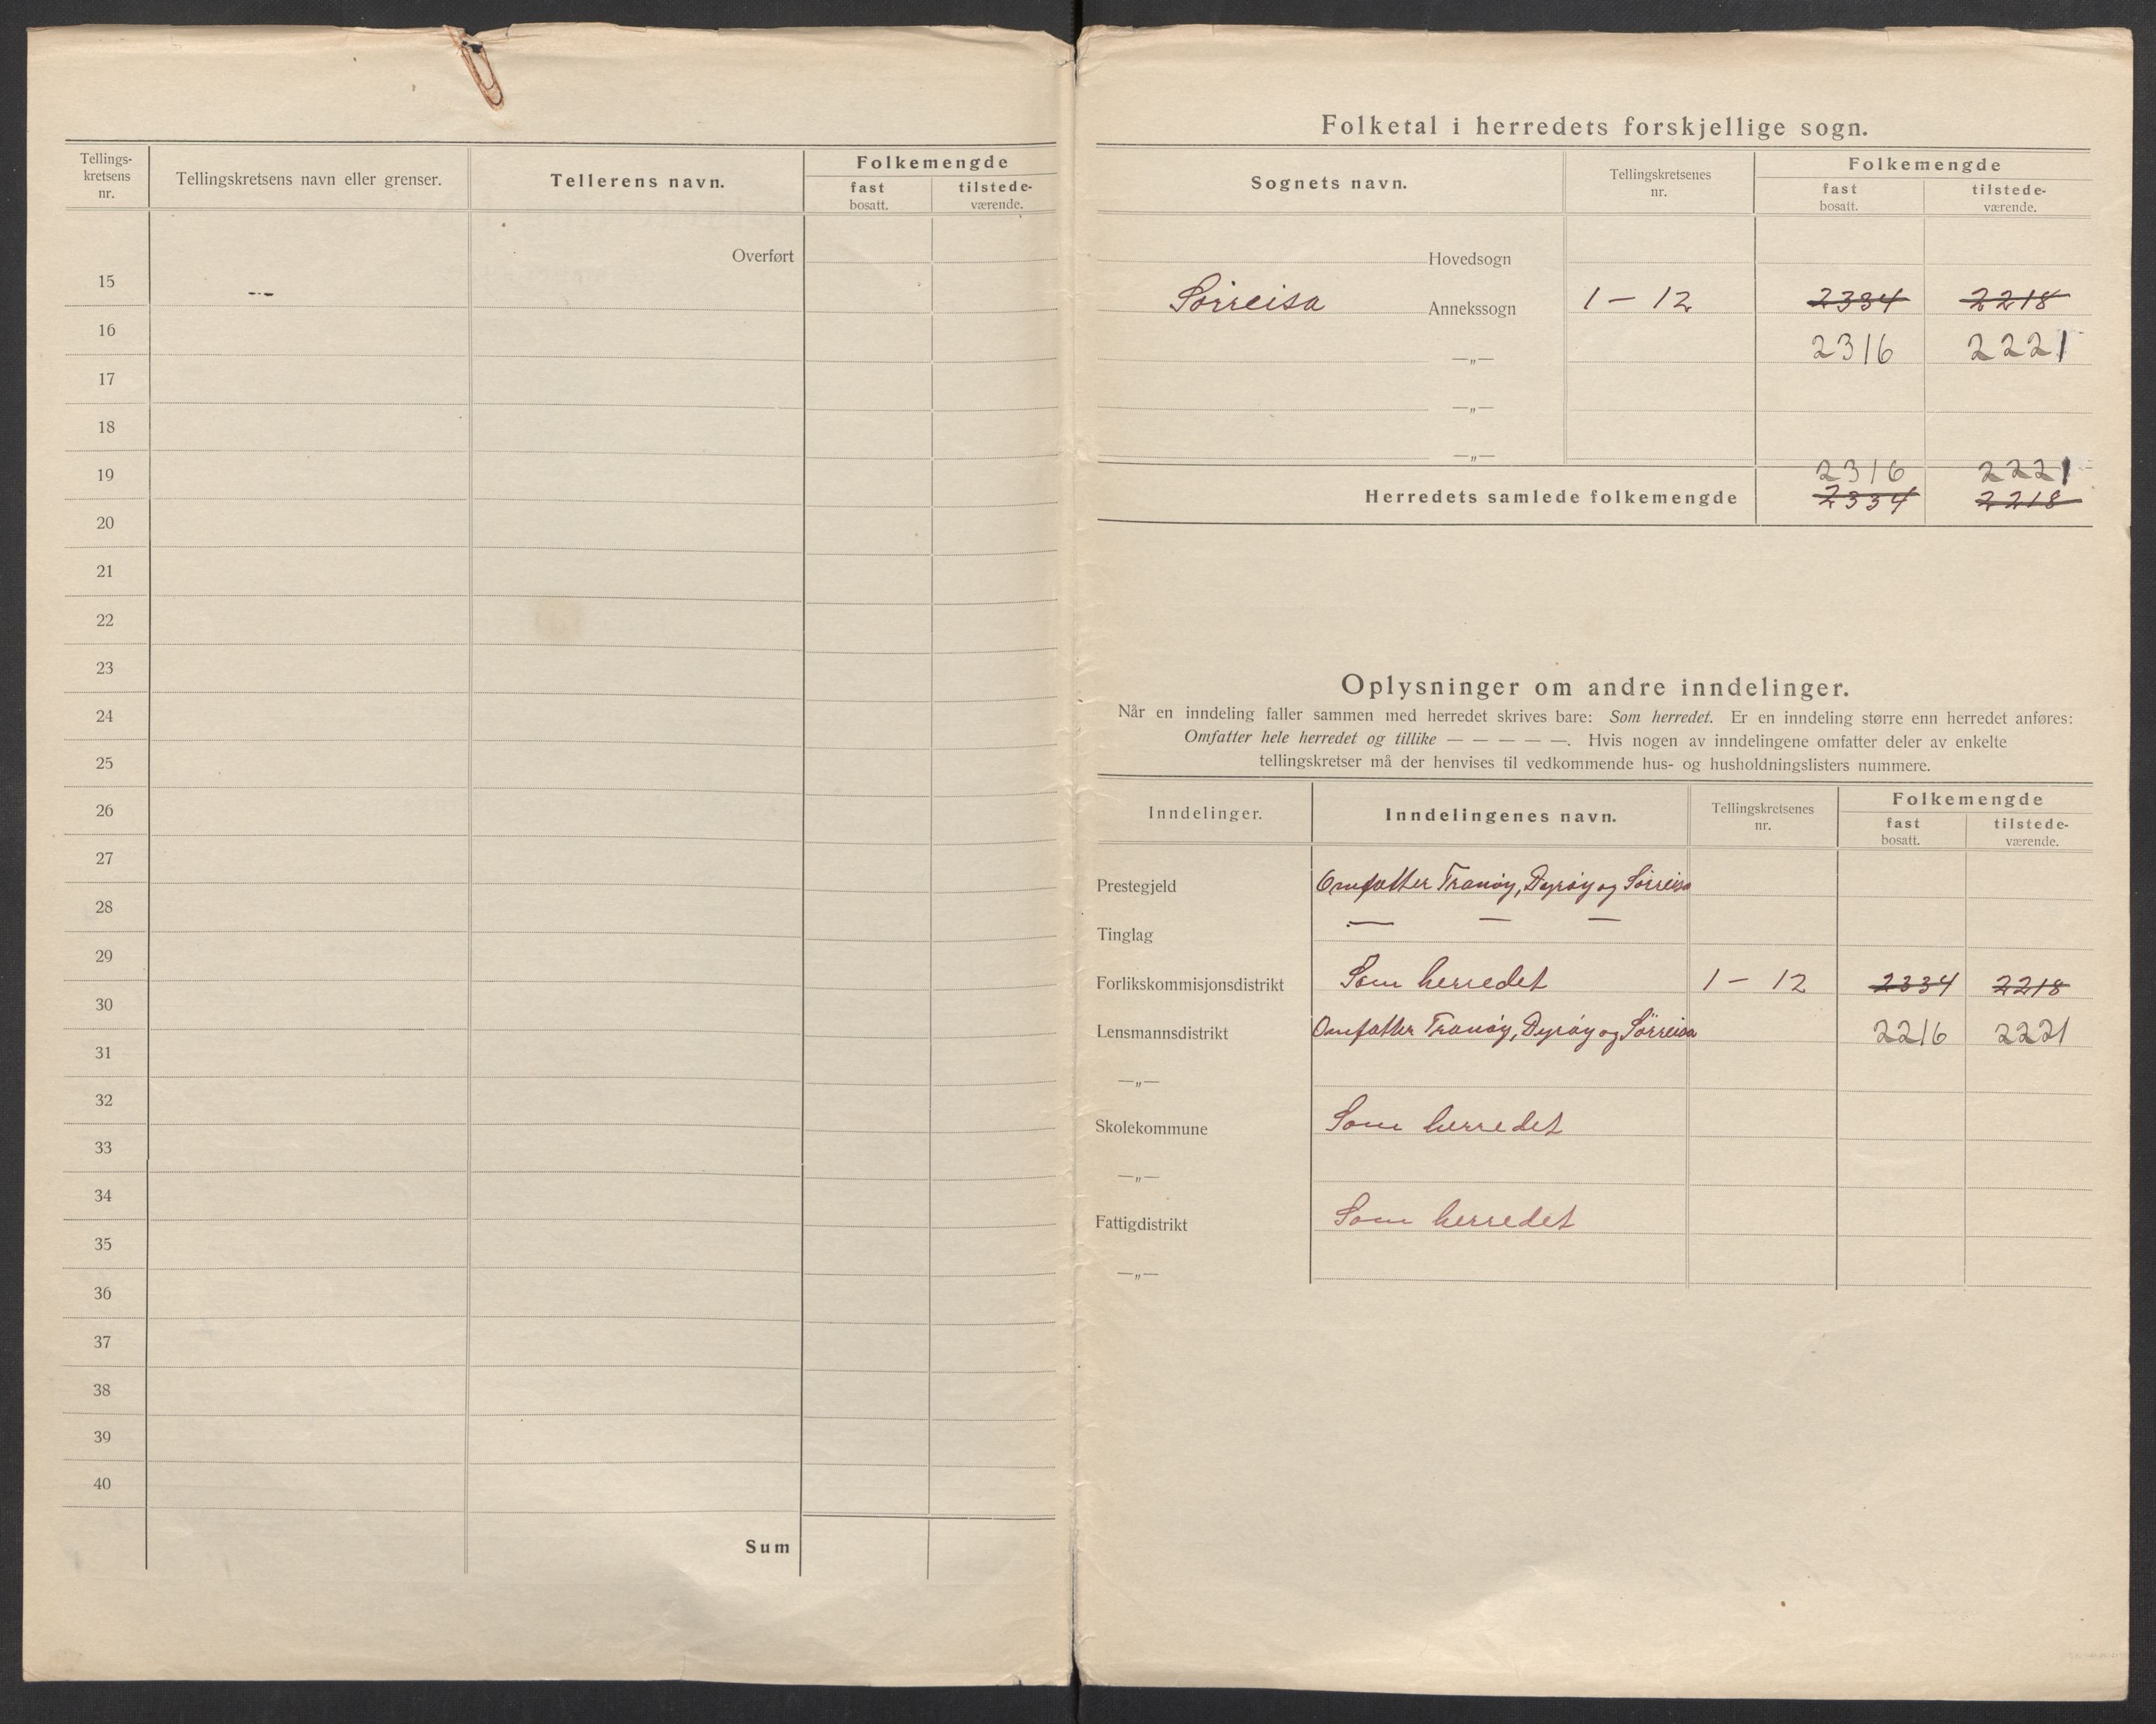 Tellings-
kretsens
nr.
Tellingskretsens navn eller grenser.
Tellerens navn.
Folkemengde
fast
bosatt.
tilstede-
værende.
Overført
15
16
17
18
19
20
21
22
23
24
25
26
27
28
29
30
31
32
33
34
35
36
37
38
39
40
Sum
Folketal i herredets forskjellige sogn.
Sognets navn.
Tellingskretsenes
nr.
Folkemengde
fast
bosatt.
tilstede-
værende.
Hovedsogn
Sörreisa Annekssogn 1 - 12 2334 2218
—„— 2316 2221
—„—
—„—
2316 2221
Herredets samlede folkemengde 2334 2218
Oplysninger om andre inndelinger.
Når en inndeling faller sammen med herredet skrives bare: Som herredet. Er en inndeling større enn herredet anføres:
Omfatter hele herredet og tillike — — — — —. Hvis nogen av inndelingene omfatter deler av enkelte
tellingskretser må der henvises til vedkommende hus- og husholdningslisters nummere.
Inndelinger.
Inndelingenes navn.
Tellingskretsenes
nr.
Folkemengde
fast
bosatt.
tilstede-
værende.
Prestegjeld Omfatter Tranöy, Dyröy og Sörreisa
Tinglag — — —
Forlikskommisjonsdistrikt Som herredet 1 - 12 2334 2218
Lensmannsdistrikt Omfatter Tranöy, Dyröy og Sörreisa 2216 2221
—„—
Skolekommune Som herredet
—„—
Fattigdistrikt Som herredet
—„—